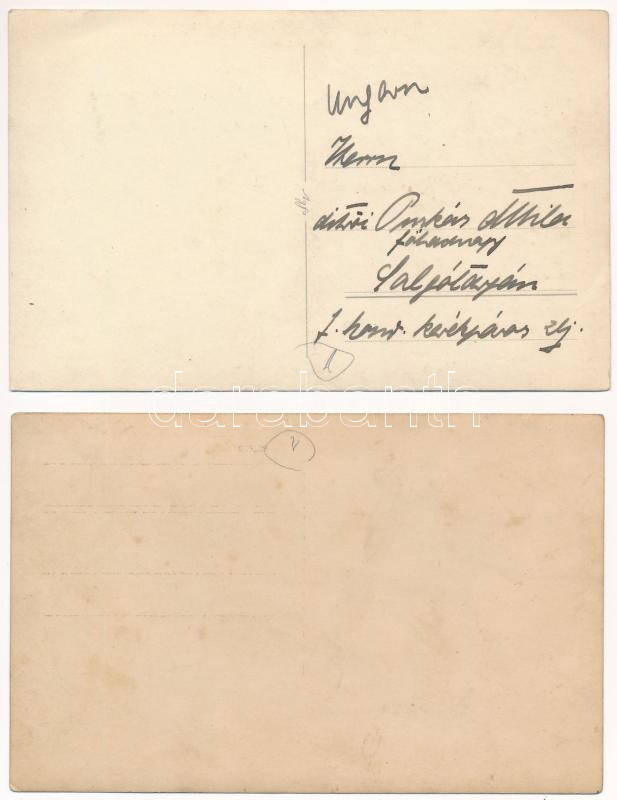 Ungarn
Herrn
ditrói Puskás Attila
főhadnagy
Salgótarján
honv. kerékpáros zlj.
darabanth